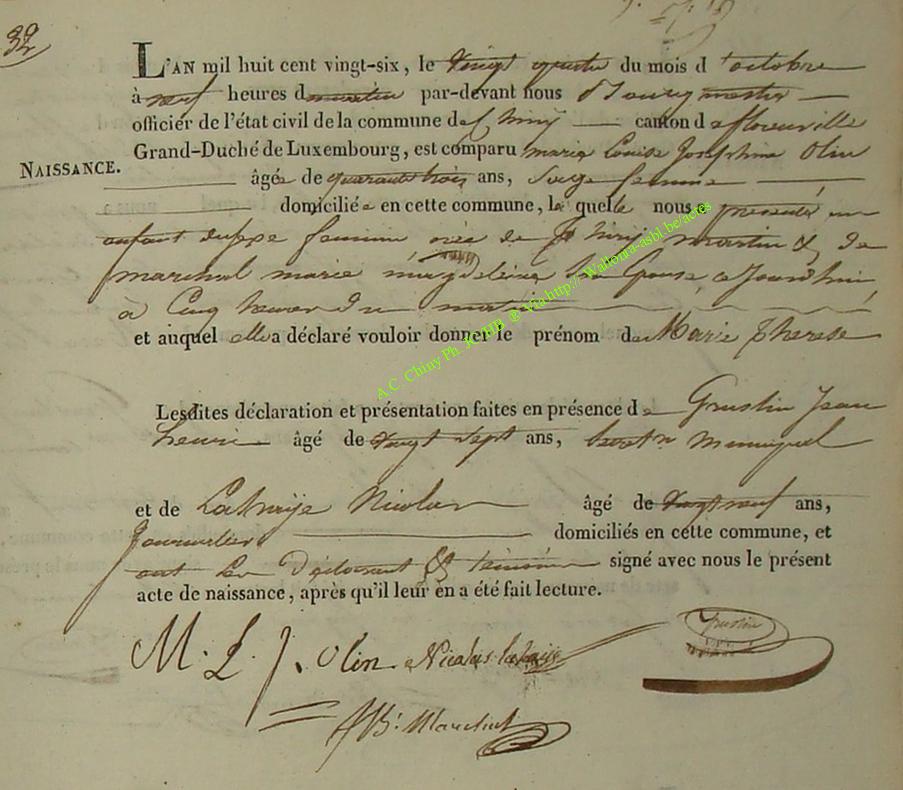 32
L'AN mil huit cent vingt-six, le vingt quatre du mois d'octobre
à neuf heures du matin par-devant nous Bourgmestre
officier de l'état civil de la commune de Chiny canton de florenville
NAISSANCE.
Grand-Duché de Luxembourg, est comparu marie Louise Josephine Olin
âgée de quarante trois ans, Sage femme
domiciliée en cette commune, la quelle nous a presenté un
enfant du sexe feminin née de martin & de
marchal marie magdeleine Son Epouse cejourdhui
à Cinq heures du matin
et auquel elle a déclaré vouloir donner le prénom de Marie therese
Lesdites déclaration et présentation faites en présence de Grustin Jean
henri âgé de vingt sept ans,
et de Nicolas âgé de vingt neuf ans,
Journalier domiciliés en cette commune, et
ont les Declarant & temoins signé avec nous le présent
acte de naissance, après qu'il leur en a été fait lecture.
M. L. J. Olin Nicolas Grustin
Marchal
A.C. Chiny Ph. JCHB @ Via http://Wallonia-asbl.be/actes